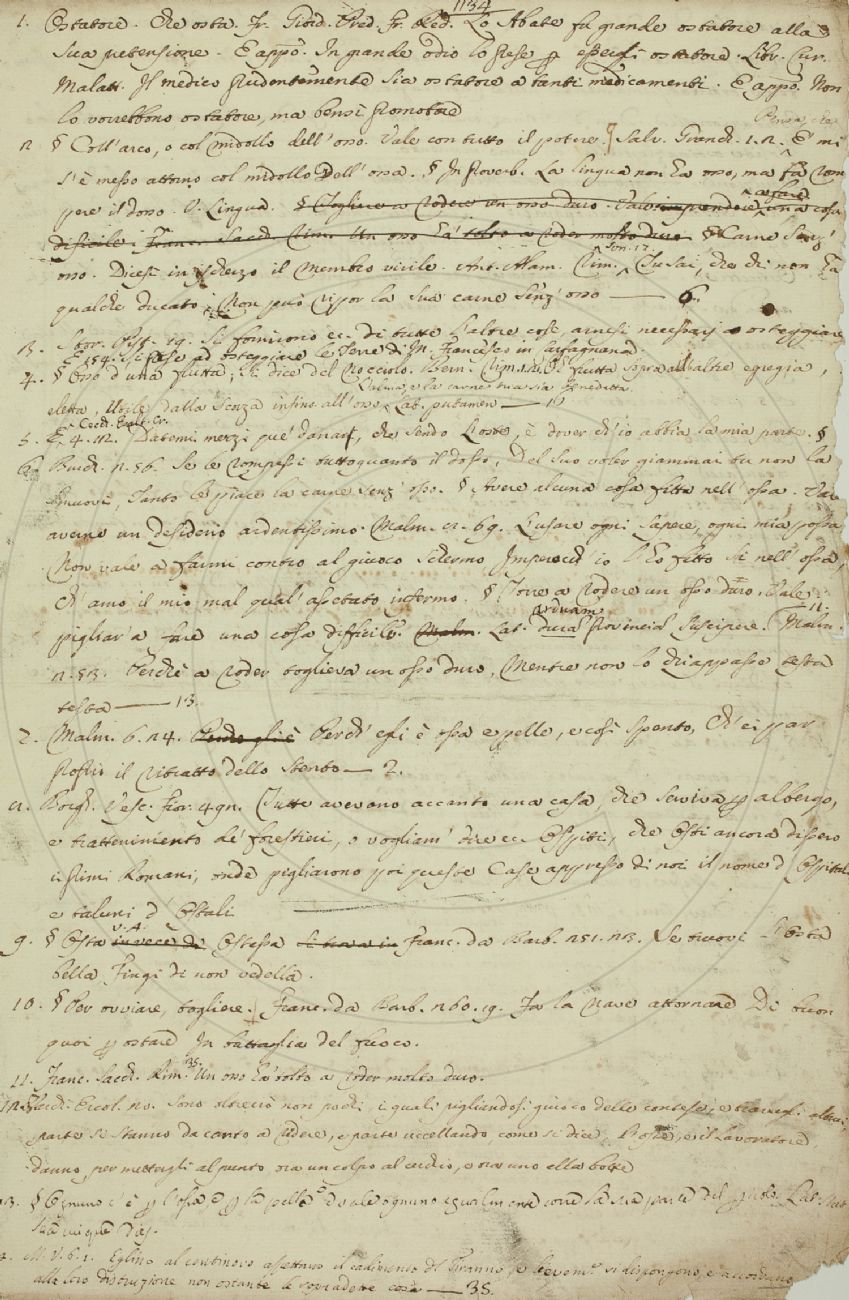 1134
1. Ostatore. Che osta. Fr. Giord. Pred. Lo Abate fu grande ostatore alla
sua pretensione. E appo. In grande odio lo prese p essergli ostatore. Libr. Cur.
Malatt. Il medico prudentemente sia ostatore a tanti medicamenti. E appo. Non
lo vorrebbono ostatore, ma bensì promotore
2 § Coll'arco, o col midollo dell'osso. Vale con tutto il potere. Salv. Granch. 1.2. E' mi
s'è messo attorno col midollo dell'ossa. § In Proverb. La lingua non ha osso, ma fa rom
pere il dosso. V. Lingua. § Togliere a rodere un osso duro. Vale imprendere una cosa
difficile. Franc. Sacch. Rim. Un osso ha' tolto a roder molto duro. § Carne senz'
osso. Dicesi in ischerzo il membro virile. Ant. Alam. Son. 17. Tu sai, che chi non ha
qualche ducato, Non può ripor la sua carne senz'osso — 6.
3. Stor. Pist. 19. Si fornirono ec. di tutte l'altre cose, arnesi necessarj a osteggiare
E 154. Si pose ad osteggiare le Terre di in Garfagnana.
4. § Osso d'una frutta; si dice del Nocciolo. Bern. Rim. O frutta sopra all'altre egregia,
eletta, Utile dalla scorza infino all'osso, L'alma, e la carne tua sia benedetta. Lat. putamen — 10
5. Cecch. Esalt. Cr. 4. 12. Datemi mezzi que' danari, che sendo l'oste, è dover ch'io abbia la mia parte. §
6. Burch. 2. 56. Se le rompessi tuttoquanto il dosso, Del suo voler giammai tu non la
muovi, Tanto le piace la carne senz'osso. § Avere alcuna cosa fitta nell'ossa. Vale
averne un desiderio ardentissimo. Malm. 69. L'usare ogni sapere, ogni mia possa
Non vale a farmi contro al giuoco schermo Imperocch' io l'ho fitto sì nell'ossa,
Ch'amo il mio mal qual' assetato infermo. § Torre a rodere un osso duro. Vale
pigliar' a fare una cosa difficile. Malm. Lat. duram arduam provinciam suscipere. Malm. 11.
53. Perchè a roder toglieva un osso duro, Mentre non lo chiappasse testa
testa — 13.
7. Malm. 6. 24. Perch' egli è Perch' egli è ossa e pelle, e così spento, Ch' ei par
proprio il ritratto dello stento — 2.
Borgh. Vesc. Fior. 492. Tutte avevano accanto una casa, che serviva p albergo,
e trattenimento de' forestieri, o vogliam' dire ec. Ospiti, che Osti ancora dissero
i primi Romani, onde pigliarono poi queste Case appresso di noi il nome d' Ospitali
e taluni d' Ostali
9. § Osta in vece di V. A. Ostessa si trova in Franc. da Barb. 251. 23. Se truovi l'Osta
bella Fingi di non vedella.
10. § Per ovviare, togliere. Franc. da Barb. 260. 19. Fa la nave attornare Di buon
quoi p ostare In battaglia del fuoco.
11. Franc. Sacch. Rim. 35. Un osso ha' tolto a roder molto duro.
12. Varch. Ercol. 20. Sono oltracciò non pochi, i quali pigliandosi giuoco delle contese, e travagli altrui,
parte si stanno da canto a ridere, e parte uccellando come si dice, l'oste, e il lavoratore
danno, per mettergli al punto, ora un colpo al cerchio, e ora uno alla botte
13. § Ognuno c'è p l'ossa, e p la pelle e vale ognuno egualmente corre la sua parte del pericolo. Lat.
sua cuique dies.
M. V. 6. 1. Eglino al continovo aspettavano il cadimento del Tiranno, e si dispongono, e
alla loro distruzione non ostante le sopraddette cose — 35.